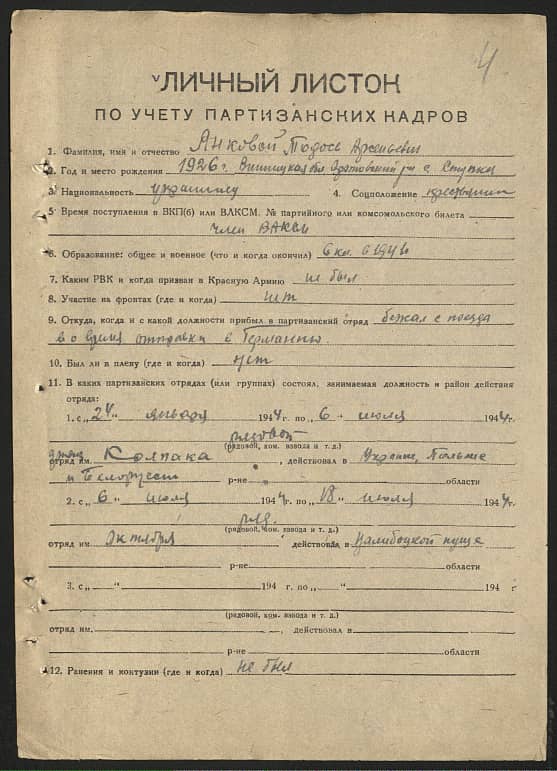 4
ЛИЧНЫЙ ЛИСТОК
ПО УЧЕТУ ПАРТИЗАНСКИХ КАДРОВ
1. Фамилия, имя и отчество Янковой Тодось Арсеньевич
2. Год и место рождения 1926 г. Винницкая обл с. Ступки
3. Национальность украинец 4. Соцположение крестьянин
5. Время поступления в ВКП(б) или ВЛКСМ. № партийного или комсомольского билета
член ВЛКСМ
6. Образование: общее и военное (что и когда окончил) 6 кл.
7. Каким РВК и когда призван в Красную Армию не был
8. Участие на фронтах (где и когда) нет
9. Откуда, когда и с какой должности прибыл в партизанский отряд бежал с поезда
во время отправки в Германию
10. Был ли в плену (где и когда) нет
11. В каких партизанских отрядах (или группах) состоял, занимаемая должность и район действия
отряда:
1. с „24„ января 1944 г. по „6 „ июля 1944 г.
рядовой
(рядовой, ком. взвода и т. д.)
отряд им. Колпака , действовал в Украине, Польше
и Белоруссии р-не области
2. с „ 6 „ июля 1944 г. по „18 „ июля 1944 г.
ряд.
(рядовой, ком. взвода и т. д.)
отряд им. Октября действовал в Налибоцкой пуще
р-не области
3. с „ „ 194 г. по „ „ 194 г
(рядовой, ком. взвода и т. д.)
отряд им. , действовал в
р-не области
12. Ранения и контузии (где и когда) не был